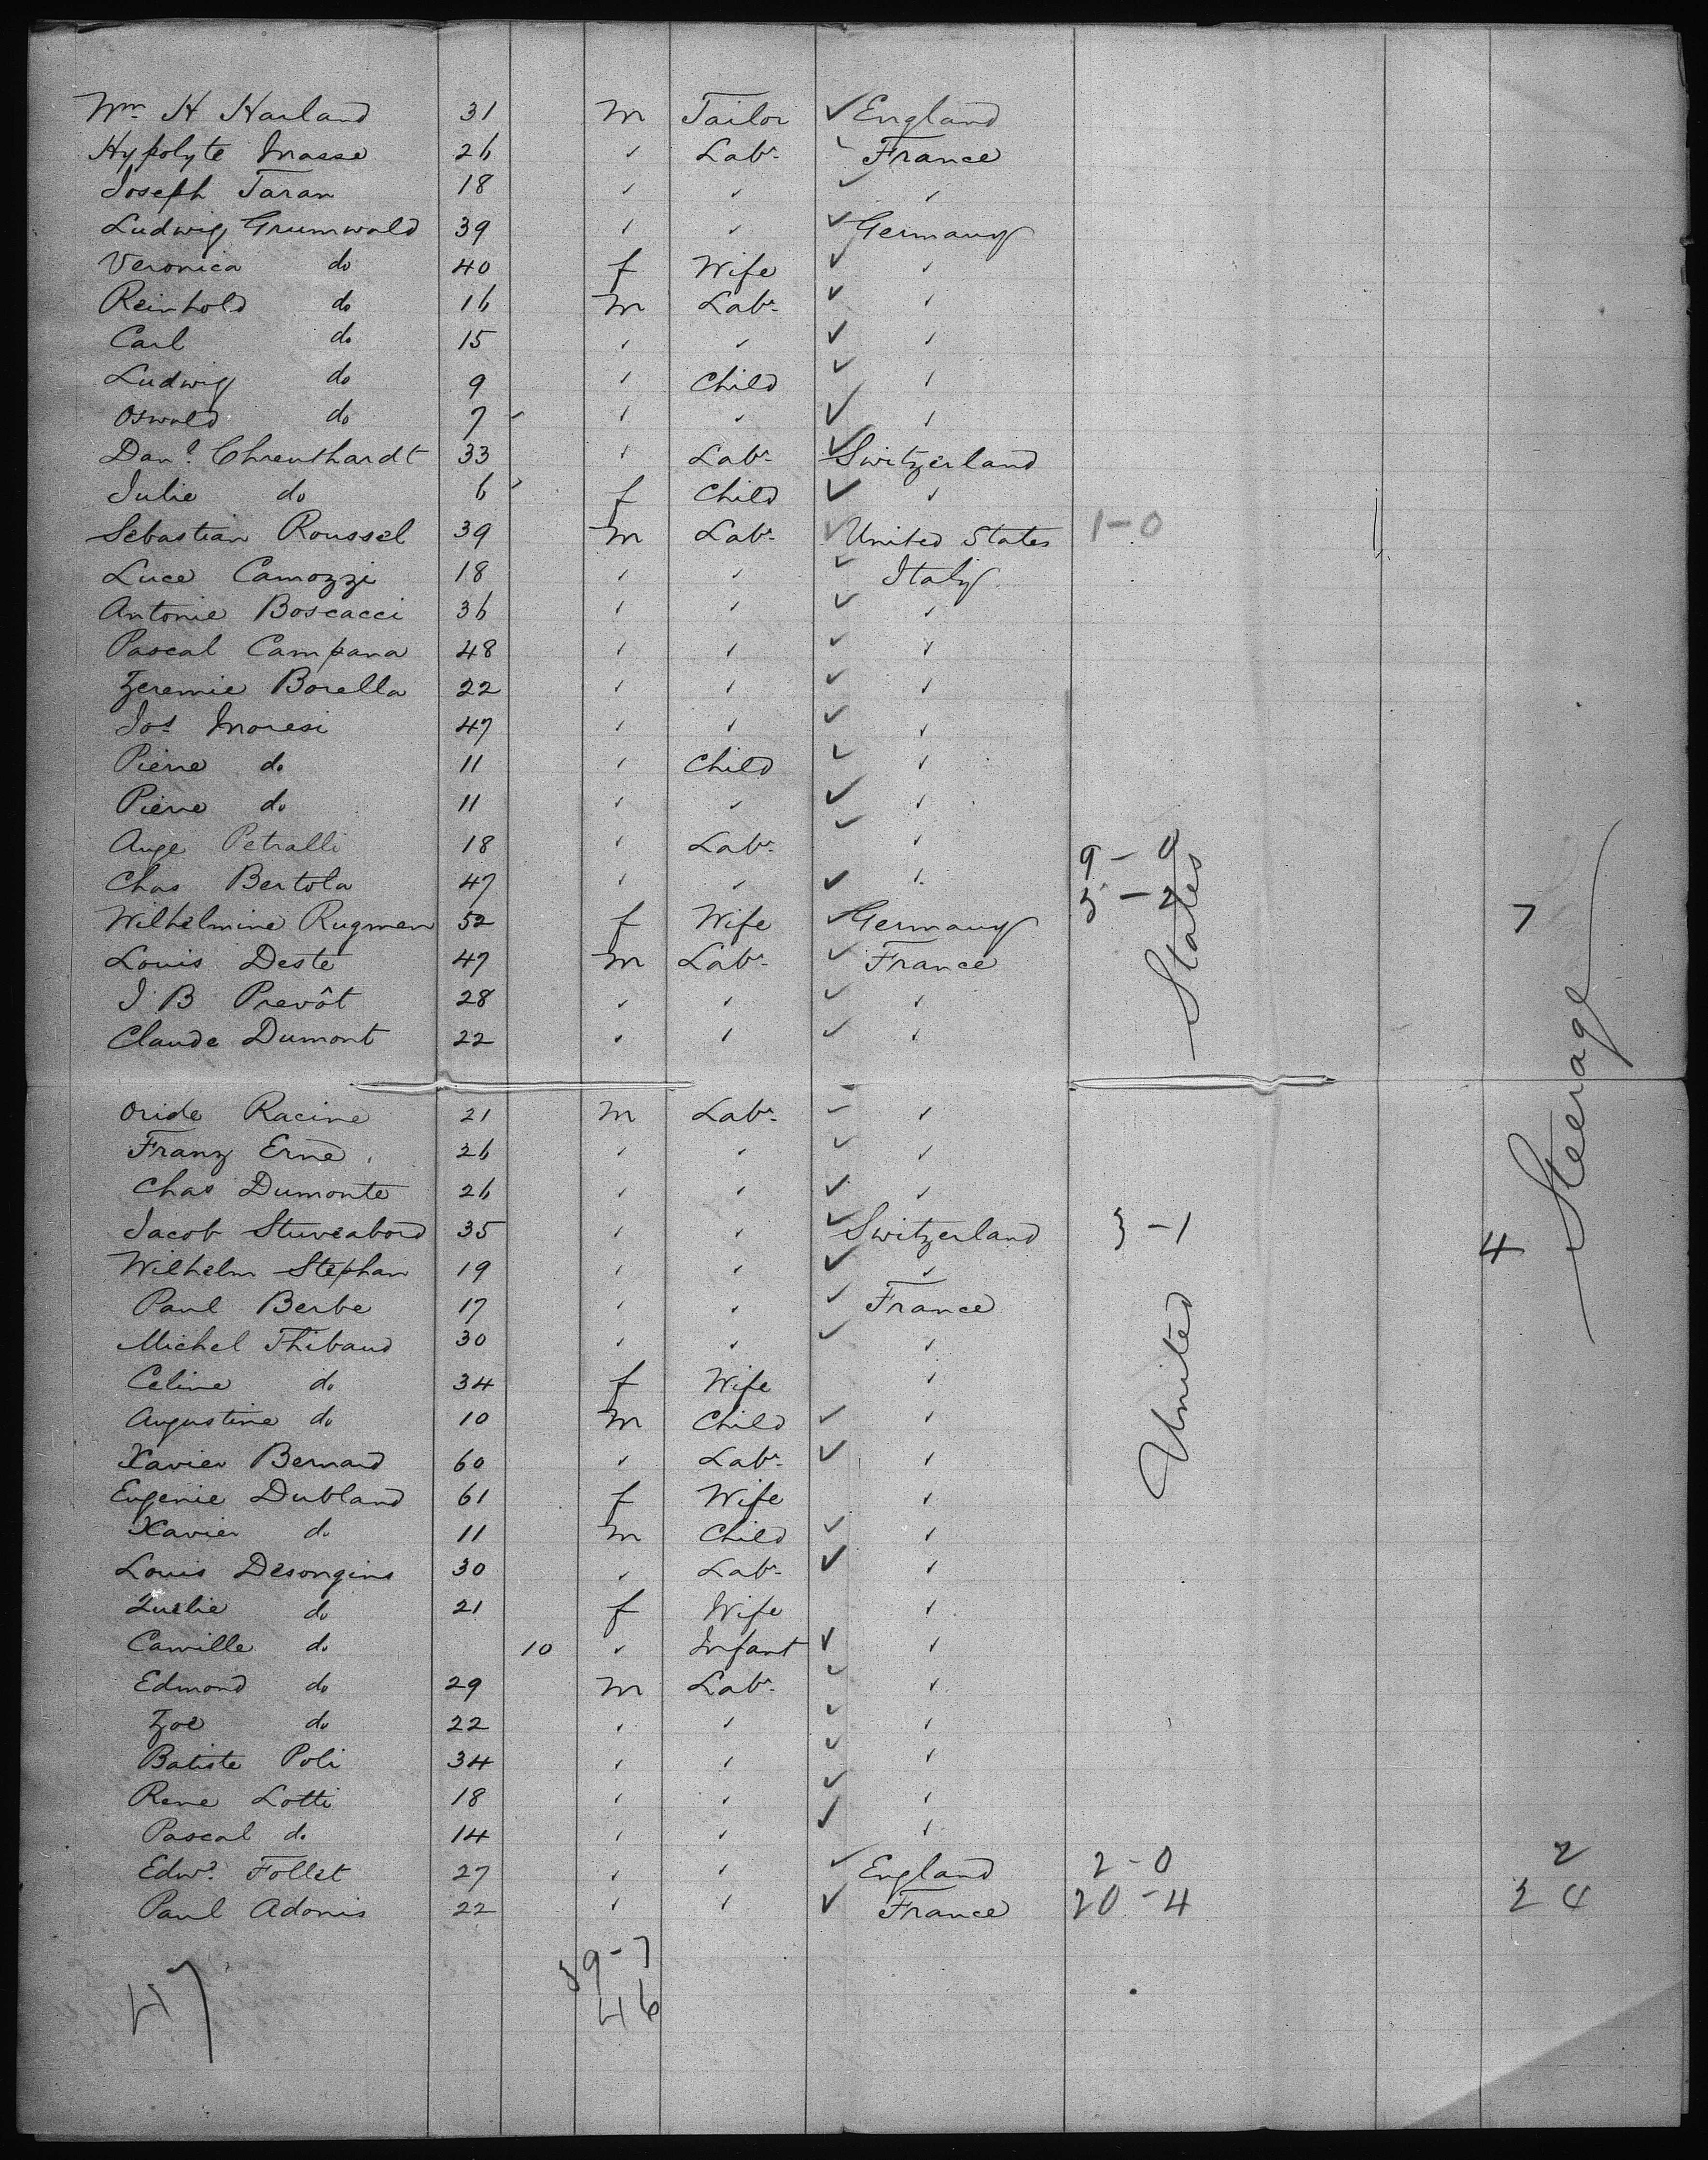 Wm H Harland 31 m Tailor ✓ England
Hypolyte Masse 26 ✓ Labr. ✓ France
Joseph Taran 18 ✓ ✓ ✓ ✓
Ludwig Grumwald 39 ✓ ✓ ✓ Germany
Veronica do 40 f Wife ✓ ✓
Reinhold do 16 m Labr. ✓ ✓
Carl do 15 ✓ ✓ ✓ ✓
Ludwig do 9 ✓ Child ✓ ✓
Oswald do 7 ✓ ✓ ✓ ✓
Danl. Chrenthardt 33 ✓ Labr. ✓ Switzerland
Julie do 6 f Child ✓ ✓
Sebastian Roussel 39 m Labr. ✓ United States 1-0
Luce Camozzi 18 ✓ ✓ ✓ Italy
Antonie Boscacci 36 ✓ ✓ ✓ ✓
Pascal Campana 48 ✓ ✓ ✓ ✓
Zeremie Borella 22 ✓ ✓ ✓ ✓
Jos Moresi 47 ✓ ✓ ✓ ✓
Pierre do 11 ✓ Child ✓ ✓
Pierre do 11 ✓ ✓ ✓ ✓
Ange Petralli 18 ✓ Labr. ✓ ✓ 9-0
Chas Bertola 47 ✓ ✓ ✓ ✓ 5-2
Wilhelmine Rugmen 52 f Wife ✓ Germany 7
Louis Deste 47 m Labr. ✓ France
J B Prevôt 28 ✓ ✓ ✓ ✓
Claude Dumont 22 ✓ ✓ ✓ ✓
Oride Racine 21 m Labr. ✓ ✓
Franz Erne 26 ✓ ✓ ✓ ✓
Chas Dumonte 26 ✓ ✓ ✓ ✓
Jacob Stuveabord 35 ✓ ✓ ✓ Switzerland 3-1 4
Wilhelm Stephan 19 ✓ ✓ ✓ ✓
Paul Berbe 17 ✓ ✓ ✓ France
Michel Thibaud 30 ✓ ✓ ✓ ✓
Celine do 34 f Wife ✓
Augustine do 10 m Child ✓ ✓
Xavier Bernard 60 ✓ Labr. ✓ ✓
Eugenie Dubland 61 f Wife ✓
Xavier do 11 m Child ✓ ✓
Louis Desongins 30 ✓ Labr. ✓ ✓
do 21 f Wife ✓
Camille do 10 ✓ Infant ✓ ✓
Edmond do 29 m Labr. ✓ ✓
Zoe do 22 ✓ ✓ ✓ ✓
Batiste Poli 34 ✓ ✓ ✓ ✓
Rene Lotti 18 ✓ ✓ ✓ ✓
Pascal do 14 ✓ ✓ ✓ ✓
Edwd. Follet 27 ✓ ✓ ✓ England 2-0 2
Paul Adonis 22 ✓ ✓ ✓ France 20-4 24
United States
Steerage
39-7
47 46